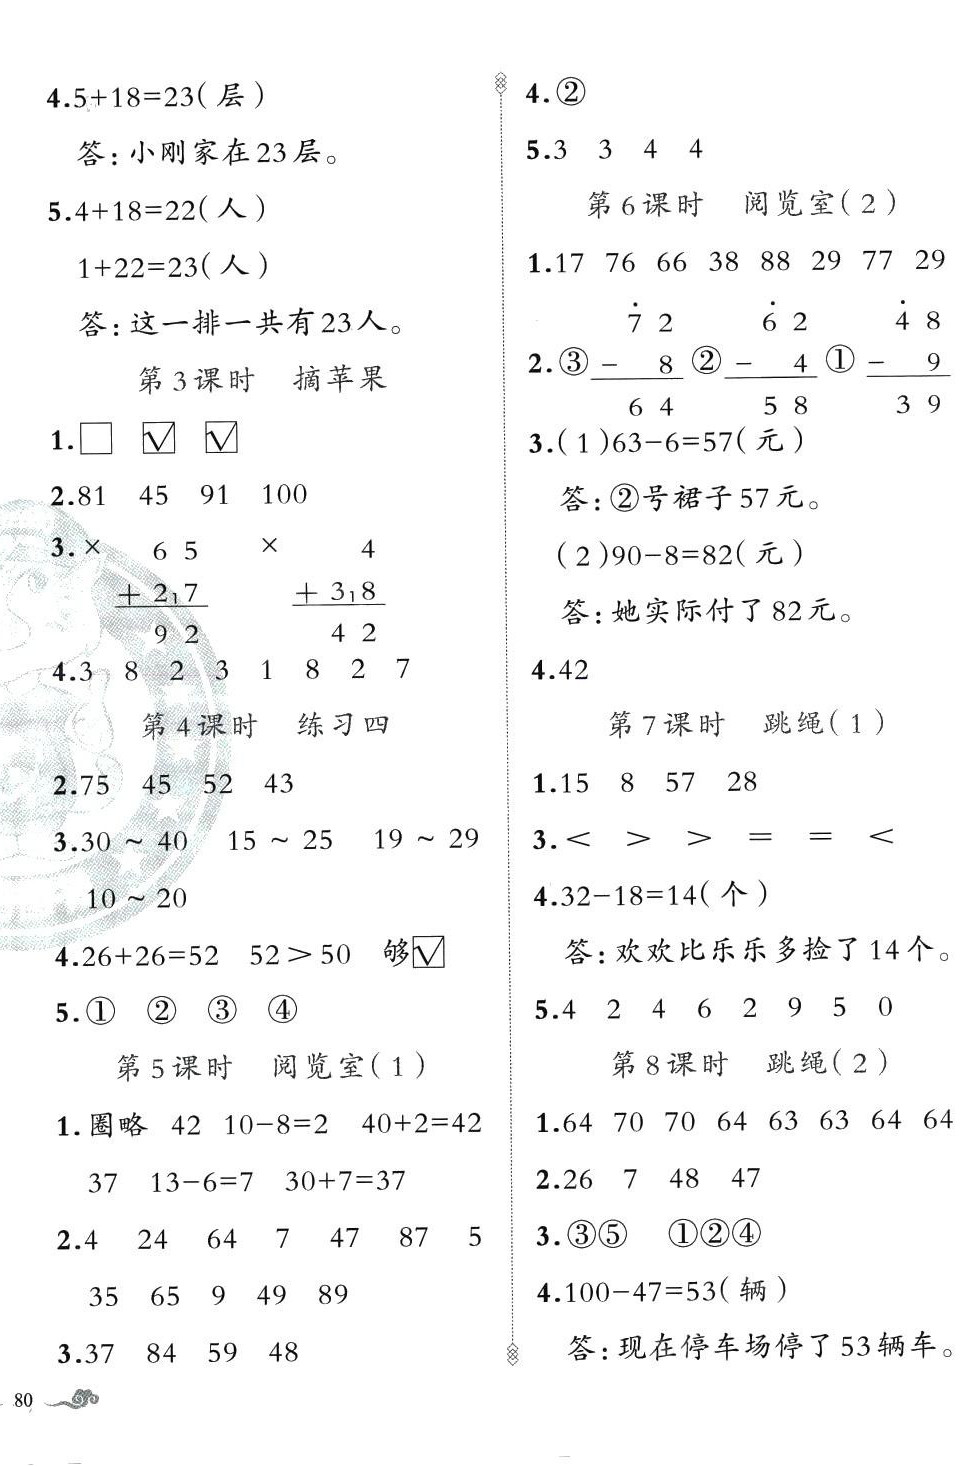 4.5+18=23(层)
答:小刚家在23层。
5.4+18=22(人)
1+22=23(人)
答:这一排一共有23人。
第3课时 摘苹果
1.□ ☑ ☑
2.81 45 91 100
3.× 6 5 × 4
+ 2₁7 + 3₁8
9 2 4 2
4.3 8 2 3 1 8 2 7
第4课时 练习四
2.75 45 52 43
3.30 ~ 40 15 ~ 25 19 ~ 29
10 ~ 20
4.26+26=52 52＞50 够☑
5.① ② ③ ④
第5课时 阅览室(1)
1.圈略 42 10−8=2 40+2=42
37 13−6=7 30+7=37
2.4 24 64 7 47 87 5
35 65 9 49 89
3.37 84 59 48
80
4.②
5.3 3 4 4
第6课时 阅览室(2)
1.17 76 66 38 88 29 77 29
7̇ 2 6̇ 2 4̇ 8
2.③ − 8 ② − 4 ① − 9
6 4 5 8 3 9
3.(1)63−6=57(元)
答:②号裙子57元。
(2)90−8=82(元)
答:她实际付了82元。
4.42
第7课时 跳绳(1)
1.15 8 57 28
3.＜ ＞ ＞ = = ＜
4.32−18=14(个)
答:欢欢比乐乐多捡了14个。
5.4 2 4 6 2 9 5 0
第8课时 跳绳(2)
1.64 70 70 64 63 63 64 64
2.26 7 48 47
3.③⑤ ①②④
4.100−47=53(辆)
答:现在停车场停了53辆车。